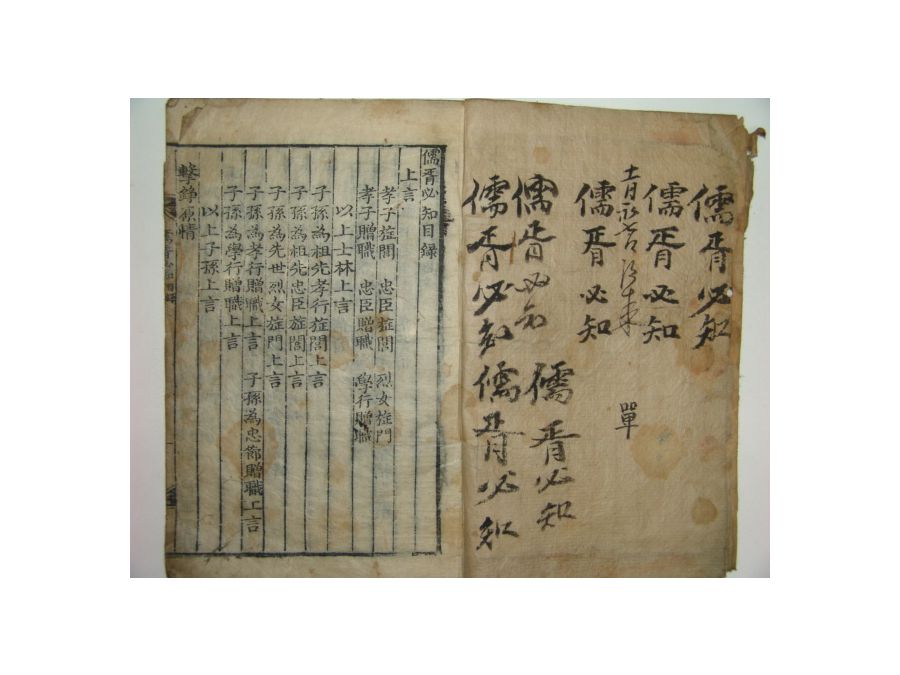 儒胥必知
儒胥必知
儒胥必知
單
儒胥必知
儒胥必知
儒胥必知
儒胥必知
儒胥必知目録
上言
孝子㫌閭 忠臣㫌閭 烈女㫌門
孝子贈職 忠臣贈職 學行贈職
以上士林上言
子孫為祖先孝行㫌閭上言
子孫為祖先忠臣㫌閭上言
子孫為先世烈女㫌門上言
子孫為孝行贈職上言 子孫為忠節贈職上言
子孫為學行贈職上言
以上子孫上言
擊錚原情